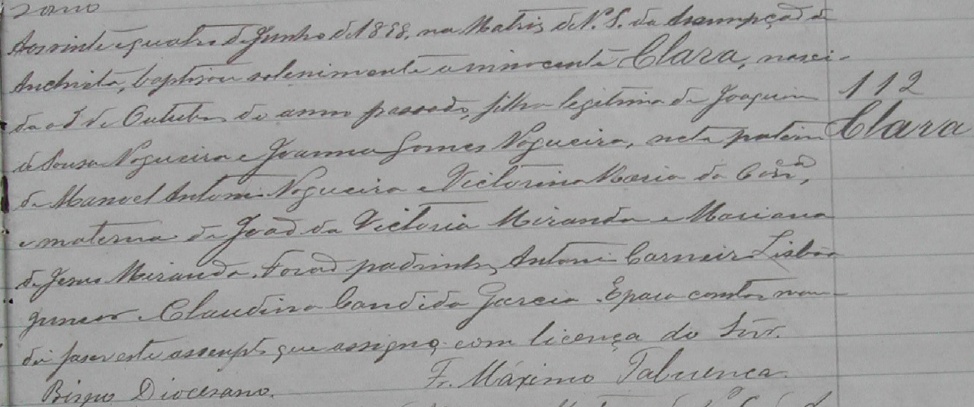 zano
Aos vinte e quatro de Junho de 1888, na Matriz de N. S. da Assumpção de
Anchieta, baptisou solenimente a innocente Clara, nasci-
da a 5 de Outubro do anno passado, filha legitima de Joaquim
de Sousa Nogueira e Joanna Gomes Nogueira, neta patern
de Manoel Antonio Nogueira e Victorina Maria da Conc.ão,
e materna de João da Victoria Miranda e Mariana
de Jesus Miranda. Forão padrinhos, Antonio Carneiro Lisboa
Junior e Claudina Candida Garcia. E para constar man-
dei faser este assempto que assigno com licença do Snr.
Bispo Diocesano. Fr. Máximo Tabuenca.
112
Clara